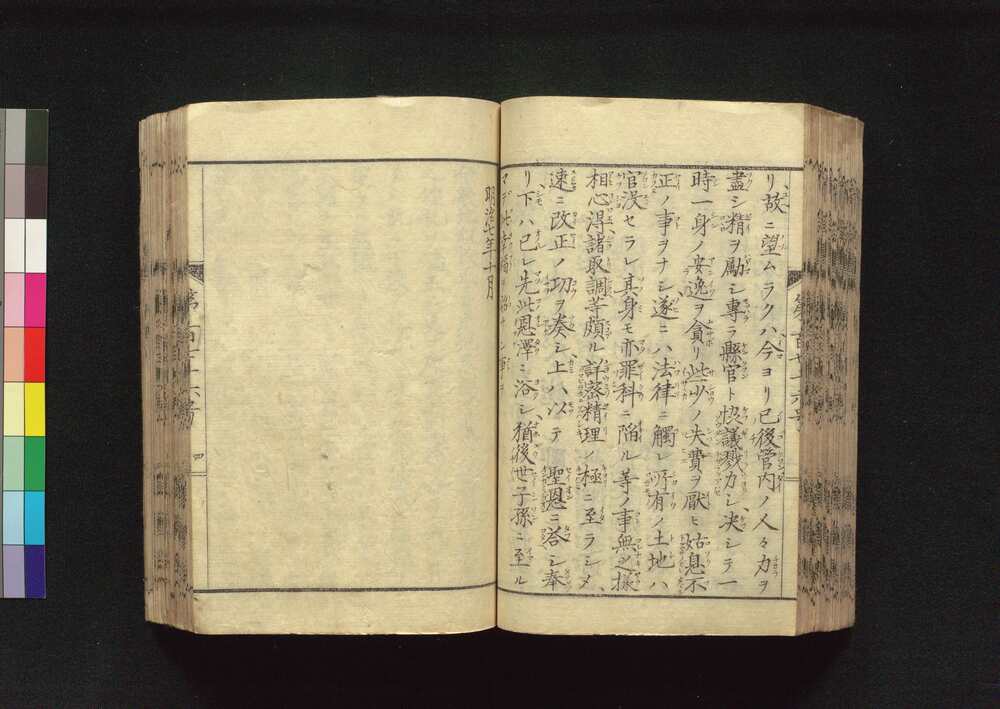 リ、故ニ望ムラクハ今ヨリ已後管内ノ人々力ヲ
盡シ精ヲ勵シ專ラ縣官ト協議戮力シ、决シテ一
時一身ノ安逸ヲ貪リ些少ノ失費ヲ厭ヒ姑息不
正ノ事ヲナシ、遂ニハ法律ニ觸レ所有ノ土地ハ
官沒セラレ其身モ亦罪科ニ陷ル等ノ事無之樣
相心得諸取調等頗ル詳密精理ノ極ニ至ラシメ、
速ニ改正ノ功ヲ奏シ上ハ以テ 聖恩ニ答シ奉
リ、下ハ已レ先此恩澤ニ浴シ、猶後世子孫ニ至ル
マデ
明治七年十月
第百七十六号
四